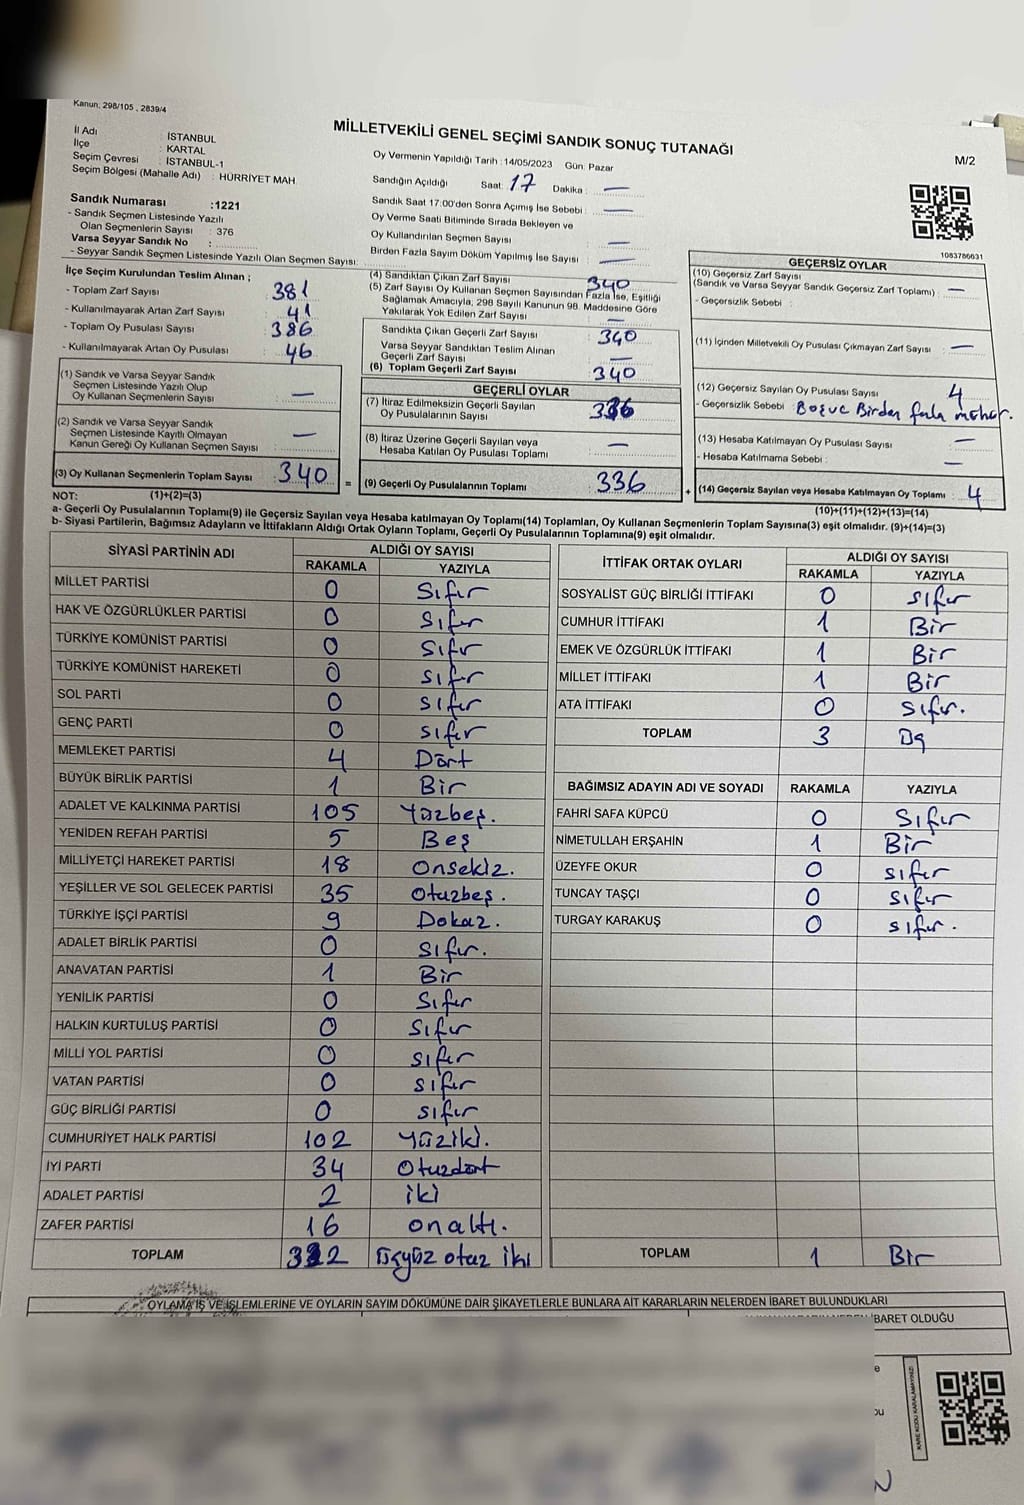 Kanun: 298/105 , 2839/4
MİLLETVEKİLİ GENEL SEÇİMİ SANDIK SONUÇ TUTANAĞI
M/2
İl Adı : İSTANBUL
İlçe : KARTAL
Seçim Çevresi : İSTANBUL-1
Seçim Bölgesi (Mahalle Adı) : HÜRRİYET MAH.
Oy Vermenin Yapıldığı Tarih : 14/05/2023 Gün: Pazar
Sandığın Açıldığı Saat: 17 Dakika : —
Sandık Saat 17:00'den Sonra Açımış İse Sebebi : —
Oy Verme Saati Bitiminde Sırada Bekleyen ve
Oy Kullandırılan Seçmen Sayısı —
Birden Fazla Sayım Döküm Yapılmış İse Sayısı : —
Sandık Numarası :1221
- Sandık Seçmen Listesinde Yazılı
Olan Seçmenlerin Sayısı : 376
Varsa Seyyar Sandık No :
- Seyyar Sandık Seçmen Listesinde Yazılı Olan Seçmen Sayısı:
1083786631
İlçe Seçim Kurulundan Teslim Alınan ;
- Toplam Zarf Sayısı : 381
- Kullanılmayarak Artan Zarf Sayısı : 41
- Toplam Oy Pusulası Sayısı : 386
- Kullanılmayarak Artan Oy Pusulası : 46
(1) Sandık ve Varsa Seyyar Sandık
Seçmen Listesinde Yazılı Olup
Oy Kullanan Seçmenlerin Sayısı : —
(2) Sandık ve Varsa Seyyar Sandık
Seçmen Listesinde Kayıtlı Olmayan
Kanun Gereği Oy Kullanan Seçmen Sayısı : —
(3) Oy Kullanan Seçmenlerin Toplam Sayısı : 340
(4) Sandıktan Çıkan Zarf Sayısı : 340
(5) Zarf Sayısı Oy Kullanan Seçmen Sayısından Fazla İse, Eşitliği
Sağlamak Amacıyla, 298 Sayılı Kanunun 98. Maddesine Göre
Yakılarak Yok Edilen Zarf Sayısı : —
Sandıkta Çıkan Geçerli Zarf Sayısı : 340
Varsa Seyyar Sandıktan Teslim Alınan
Geçerli Zarf Sayısı : —
(6) Toplam Geçerli Zarf Sayısı : 340
GEÇERLİ OYLAR
(7) İtiraz Edilmeksizin Geçerli Sayılan
Oy Pusulalarının Sayısı : 336
(8) İtiraz Üzerine Geçerli Sayılan veya
Hesaba Katılan Oy Pusulası Toplamı : —
= (9) Geçerli Oy Pusulalarının Toplamı : 336
GEÇERSİZ OYLAR
(10) Geçersiz Zarf Sayısı
(Sandık ve Varsa Seyyar Sandık Geçersiz Zarf Toplamı) : —
- Geçersizlik Sebebi :
(11) İçinden Milletvekili Oy Pusulası Çıkmayan Zarf Sayısı : —
(12) Geçersiz Sayılan Oy Pusulası Sayısı : 4
- Geçersizlik Sebebi : Birden fazla
(13) Hesaba Katılmayan Oy Pusulası Sayısı : —
- Hesaba Katılmama Sebebi : —
+ (14) Geçersiz Sayılan veya Hesaba Katılmayan Oy Toplamı : 4
NOT: (1)+(2)=(3)
(10)+(11)+(12)+(13)=(14)
a- Geçerli Oy Pusulalarının Toplamı(9) ile Geçersiz Sayılan veya Hesaba katılmayan Oy Toplamı(14) Toplamları, Oy Kullanan Seçmenlerin Toplam Sayısına(3) eşit olmalıdır. (9)+(14)=(3)
b- Siyasi Partilerin, Bağımsız Adayların ve İttifakların Aldığı Ortak Oyların Toplamı, Geçerli Oy Pusulalarının Toplamına(9) eşit olmalıdır.
SİYASİ PARTİNİN ADI ALDIĞI OY SAYISI
RAKAMLA YAZIYLA
MİLLET PARTİSİ 0 Sıfır
HAK VE ÖZGÜRLÜKLER PARTİSİ 0 Sıfır
TÜRKİYE KOMÜNİST PARTİSİ 0 Sıfır
TÜRKİYE KOMÜNİST HAREKETİ 0 sıfır
SOL PARTİ 0 sıfır
GENÇ PARTİ 0 sıfır
MEMLEKET PARTİSİ 4 Dört
BÜYÜK BİRLİK PARTİSİ 1 Bir
ADALET VE KALKINMA PARTİSİ 105 Yüzbeş.
YENİDEN REFAH PARTİSİ 5 Beş
MİLLİYETÇİ HAREKET PARTİSİ 18 Onsekiz.
YEŞİLLER VE SOL GELECEK PARTİSİ 35 Otuzbeş.
TÜRKİYE İŞÇİ PARTİSİ 9 Dokuz.
ADALET BİRLİK PARTİSİ 0 Sıfır.
ANAVATAN PARTİSİ 1 Bir
YENİLİK PARTİSİ 0 Sıfır
HALKIN KURTULUŞ PARTİSİ 0 Sıfır
MİLLİ YOL PARTİSİ 0 sıfır
VATAN PARTİSİ 0 sıfır
GÜÇ BİRLİĞİ PARTİSİ 0 sıfır
CUMHURİYET HALK PARTİSİ 102 Yüziki.
İYİ PARTİ 34 Otuzdört
ADALET PARTİSİ 2 iki
ZAFER PARTİSİ 16 onaltı.
TOPLAM 332 üçyüz otuz iki
İTTİFAK ORTAK OYLARI ALDIĞI OY SAYISI
RAKAMLA YAZIYLA
SOSYALİST GÜÇ BİRLİĞİ İTTİFAKI 0 sıfır
CUMHUR İTTİFAKI 1 Bir
EMEK VE ÖZGÜRLÜK İTTİFAKI 1 Bir
MİLLET İTTİFAKI 1 Bir
ATA İTTİFAKI 0 Sıfır.
TOPLAM 3 Üç
BAĞIMSIZ ADAYIN ADI VE SOYADI RAKAMLA YAZIYLA
FAHRİ SAFA KÜPCÜ 0 Sıfır
NİMETULLAH ERŞAHİN 1 Bir
ÜZEYFE OKUR 0 sıfır
TUNCAY TAŞÇI 0 sıfır
TURGAY KARAKUŞ 0 sıfır.
TOPLAM 1 Bir
OYLAMA İŞ VE İŞLEMLERİNE VE OYLARIN SAYIM DÖKÜMÜNE DAİR ŞİKAYETLERLE BUNLARA AİT KARARLARIN NELERDEN İBARET BULUNDUKLARI
İBARET OLDUĞU
KARE KODU KARALAMAYINIZ